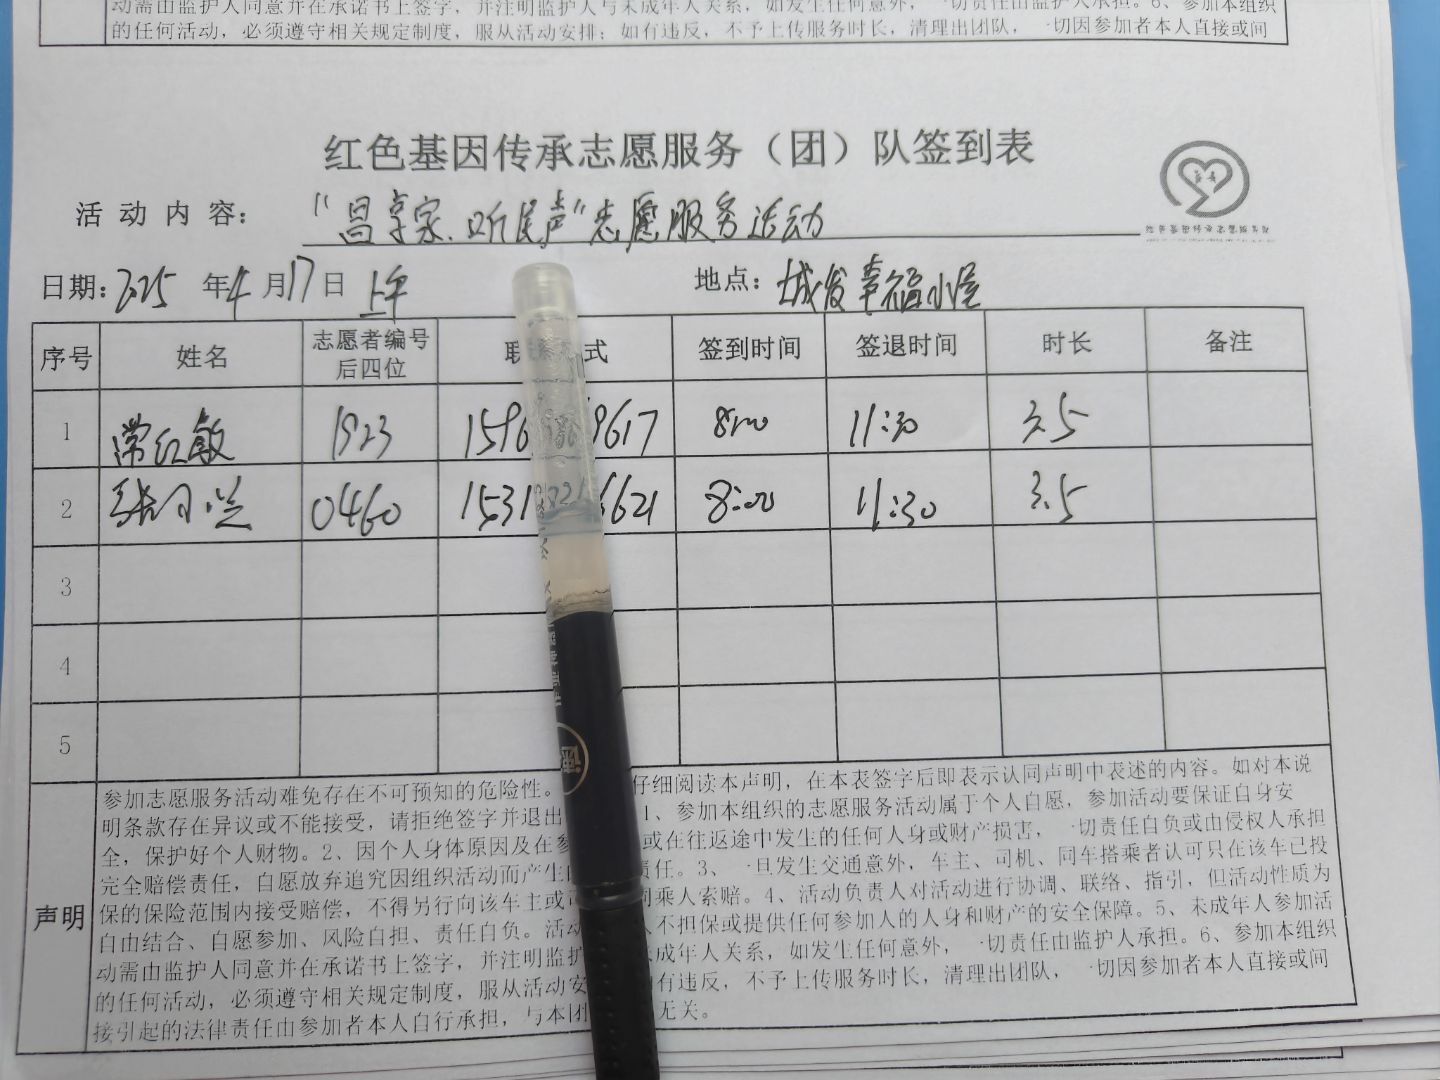 动需由监护人同意并在承诺书上签字，并注明监护人与未成年人关系，如发生任何意外，一切责任由监护人承担。6、参加本组织
的任何活动，必须遵守相关规定制度，服从活动安排；如有违反，不予上传服务时长，清理出团队，一切因参加者本人直接或间
红色基因传承志愿服务（团）队签到表
活动内容：“昌享家.听民声”志愿服务活动
日期：2025年4月17日 上午 地点：城发幸福小屋
序号 姓名 志愿者编号后四位 联 式 签到时间 签退时间 时长 备注
1 常红敏 1923 1596 9617 8:00 11:30 3.5
2 张 0460 1531 6621 8:00 11:30 3.5
3
4
5
声明
参加志愿服务活动难免存在不可预知的危险性。 仔细阅读本声明，在本表签字后即表示认同声明中表述的内容。如对本说
明条款存在异议或不能接受，请拒绝签字并退出 1、参加本组织的志愿服务活动属于个人自愿，参加活动要保证自身安
全，保护好个人财物。2、因个人身体原因及在参 或在往返途中发生的任何人身或财产损害，一切责任自负或由侵权人承担
完全赔偿责任，自愿放弃追究因组织活动而产生 责任。3、一旦发生交通意外，车主、司机、同车搭乘者认可只在该车已投
保的保险范围内接受赔偿，不得另行向该车主或 同乘人索赔。4、活动负责人对活动进行协调、联络、指引，但活动性质为
自由结合、自愿参加、风险自担、责任自负。活动 人不担保或提供任何参加人的人身和财产的安全保障。5、未成年人参加活
动需由监护人同意并在承诺书上签字，并注明监护 未成年人关系，如发生任何意外，一切责任由监护人承担。6、参加本组织
的任何活动，必须遵守相关规定制度，服从活动安 有违反，不予上传服务时长，清理出团队，一切因参加者本人直接或间
接引起的法律责任由参加者本人自行承担，与本团 无关。